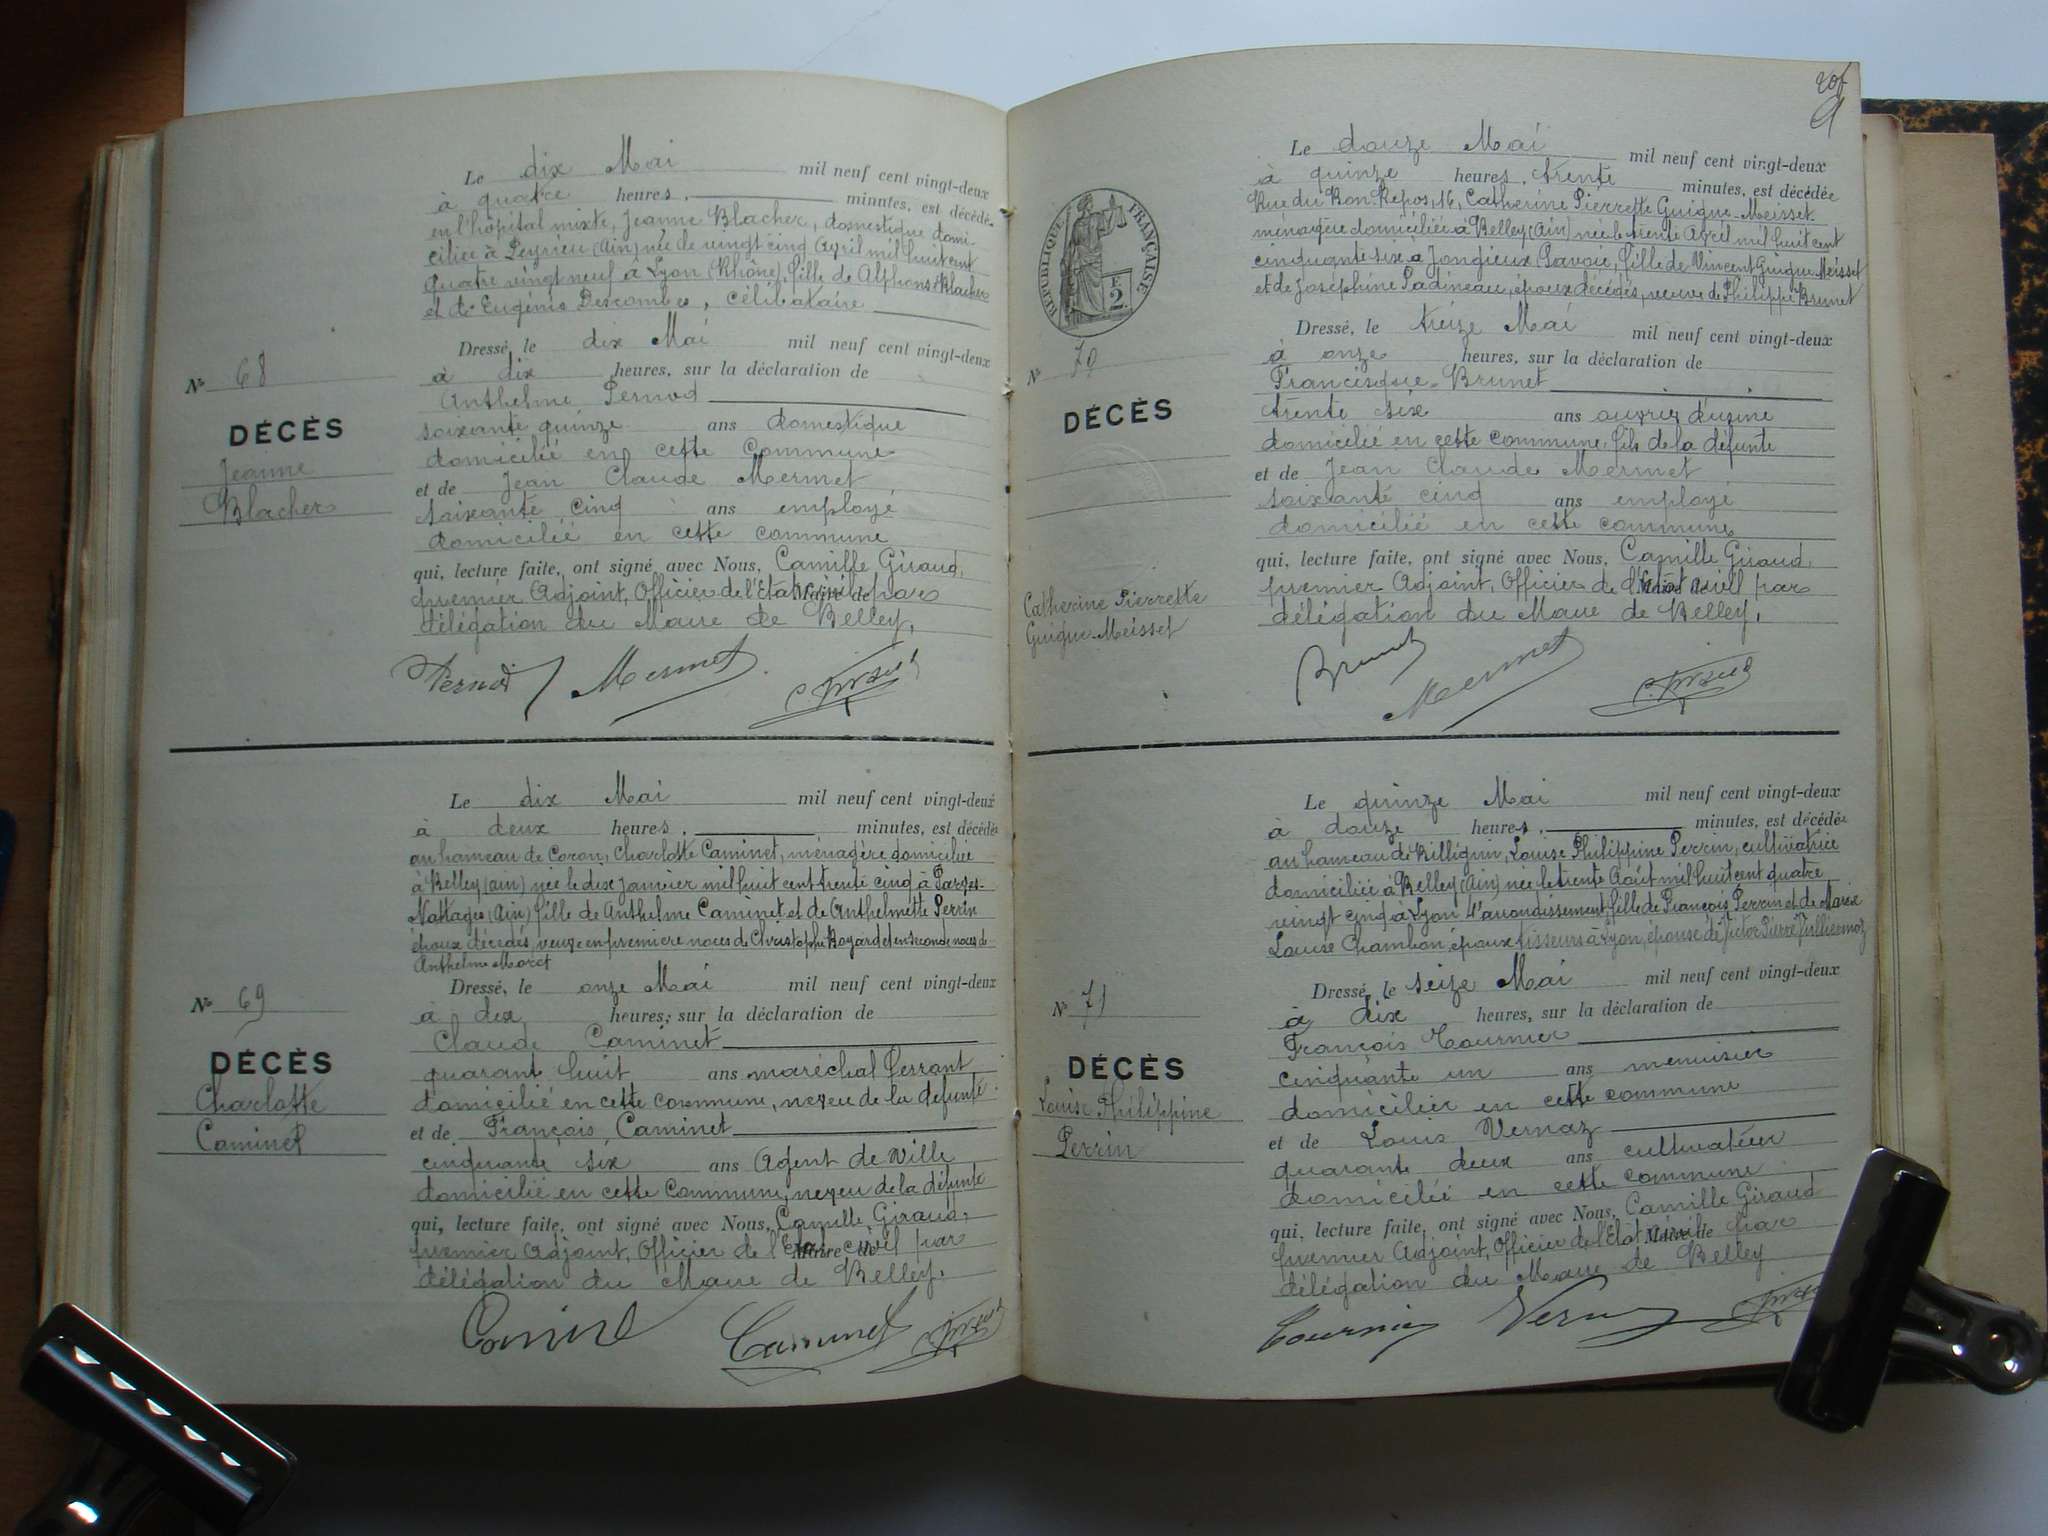 Le dix Mai mil neuf cent vingt-deux
à quatre heures, minutes, est décédée
en l'hôpital mixte, Jeanne Blacher, domestique domi-
ciliée à Peyrieu (Ain) née le vingt cinq Avril mil huit cent
quatre vingt neuf à Lyon (Rhône), fille de Alphonse Blacher
et de Eugénie Descombes, célibataire
Dressé, le dix Mai mil neuf cent vingt-deux
à dix heures, sur la déclaration de
Anthelme Pernod
soixante quinze ans domestique
domicilié en cette commune
et de Jean Claude Mermet
soixante cinq ans employé
domicilié en cette commune
qui, lecture faite, ont signé avec Nous, Camille Giraud,
premier Adjoint, Officier de l'Etat civil par
Maire de
délégation du Maire de Belley.
Pernod Mermet
N° 68
DÉCÈS
Jeanne
Blacher
Le dix Mai mil neuf cent vingt-deux
à deux heures, minutes, est décédée
au hameau de Coron, Charlotte Caminet, ménagère domiciliée
à Belley (Ain) née le dix janvier mil huit cent trente cinq à Parves-
Nattages (Ain) fille de Anthelme Caminet et de Anthelmette Perrin
époux décédés, veuve en première noces de Christophe Bogard et en seconde noces de
Anthelme Moret
Dressé, le onze Mai mil neuf cent vingt-deux
à dix heures, sur la déclaration de
Claude Caminet
quarante huit ans maréchal ferrant
domicilié en cette commune, neveu de la defunte
et de François Caminet
cinquante six ans Agent de Ville
domicilié en cette commune, neveu de la défunte
qui, lecture faite, ont signé avec Nous, Camille Giraud,
premier Adjoint, Officier de l'Etat civil par
Maire de
délégation du Maire de Belley.
Caminet Caminet
N° 69
DÉCÈS
Charlotte
Caminet
Le douze Mai mil neuf cent vingt-deux
à quinze heures, trente minutes, est décédée
Rue du Bon-Repos, 16, Catherine Pierrette Guigue-Meisset
ménagère domiciliée à Belley (Ain) née le trente Avril mil huit cent
cinquante six à Jongieux (Savoie), fille de Vincent Guigue Meisset
et de Joséphine Padineau, époux décédés, veuve de Philippe Brunet
Dressé, le treize Mai mil neuf cent vingt-deux
à onze heures, sur la déclaration de
Francisque Brunet
trente six ans ouvrier d'usine
domicilié en cette commune, fils de la défunte
et de Jean Claude Mermet
soixante cinq ans employé
domicilié en cette commune
qui, lecture faite, ont signé avec Nous, Camille Giraud,
premier Adjoint, Officier de l'Etat civil par
Maire de
délégation du Maire de Belley.
Brunet Mermet
RÉPUBLIQUE FRANÇAISE
E
2
N° 70
DÉCÈS
Catherine Pierrette
Guigue-Meisset
Le quinze Mai mil neuf cent vingt-deux
à douze heures, minutes, est décédée
au hameau de Billignin, Louise Philippine Perrin, cultivatrice
domiciliée à Belley (Ain) née le trente Août mil huit cent quatre
vingt cinq à Lyon 4e arrondissement, fille de François Perrin et de Marie
Louise Chambon, époux tisseurs à Lyon, épouse de Victor Pierre Jullien
Dressé, le seize Mai mil neuf cent vingt-deux
à dix heures, sur la déclaration de
François Tournier
cinquante un ans menuisier
domicilier en cette commune
et de Louis Vernaz
quarante deux ans cultivateur
domicilié en cette commune
qui, lecture faite, ont signé avec Nous, Camille Giraud
premier Adjoint, Officier de l'Etat civil par
Maire de
délégation du Maire de Belley
Tournier Vernaz
N° 71
DÉCÈS
Louise Philippine
Perrin